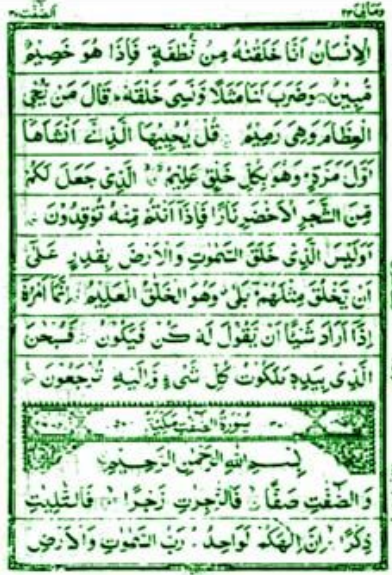 ومالی ٢٣ الصّٰفّٰت ٣٧
الْاِنْسَانُ اَنَّا خَلَقْنٰهُ مِنْ نُّطْفَةٍ فَاِذَا هُوَ خَصِیْمٌ
مُّبِیْنٌ وَضَرَبَ لَنَا مَثَلًا وَّنَسِیَ خَلْقَهٗ قَالَ مَنْ یُّحْیِ
الْعِظَامَ وَهِیَ رَمِیْمٌ قُلْ یُحْیِیْهَا الَّذِیْۤ اَنْشَاَهَاۤ
اَوَّلَ مَرَّةٍ وَهُوَ بِكُلِّ خَلْقٍ عَلِیْمٌ الَّذِیْ جَعَلَ لَكُمْ
مِّنَ الشَّجَرِ الْاَخْضَرِ نَارًا فَاِذَاۤ اَنْتُمْ مِّنْهُ تُوْقِدُوْنَ
اَوَلَیْسَ الَّذِیْ خَلَقَ السَّمٰوٰتِ وَالْاَرْضَ بِقٰدِرٍ عَلٰۤی
اَنْ یَّخْلُقَ مِثْلَهُمْ بَلٰی وَهُوَ الْخَلّٰقُ الْعَلِیْمُ اِنَّمَاۤ اَمْرُهٗۤ
اِذَاۤ اَرَادَ شَیْـًٔا اَنْ یَّقُوْلَ لَهٗ كُنْ فَیَكُوْنُ فَسُبْحٰنَ
الَّذِیْ بِیَدِهٖ مَلَكُوْتُ كُلِّ شَیْءٍ وَّاِلَیْهِ تُرْجَعُوْنَ
سُوْرَةُ الصّٰفّٰتِ مَكِّیَّةٌ
بِسْمِ اللّٰهِ الرَّحْمٰنِ الرَّحِیْمِ
وَالصّٰٓفّٰتِ صَفًّا فَالزّٰجِرٰتِ زَجْرًا فَالتّٰلِیٰتِ
ذِكْرًا اِنَّ اِلٰهَكُمْ لَوَاحِدٌ رَبُّ السَّمٰوٰتِ وَالْاَرْضِ